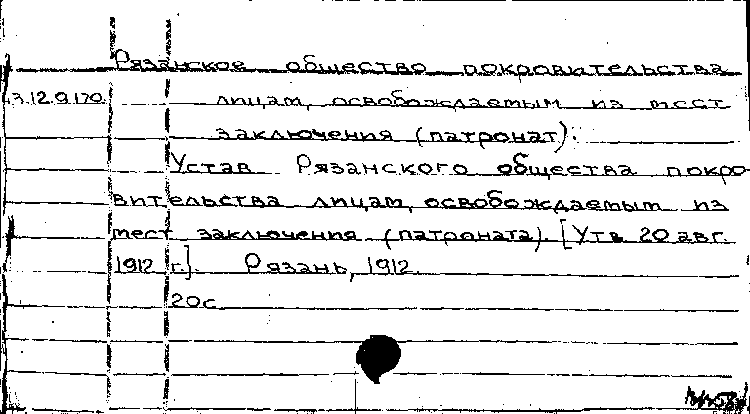 Рязанское общество покровительства
3.12.9.170. лицам, освобождаемым из мест
заключения (патронат).
Устав Рязанского общества покро-
вительства лицам, освобождаемым из
мест заключения (патроната). [Утв. 20 авг.
1912 г.]. Рязань, 1912.
20с.